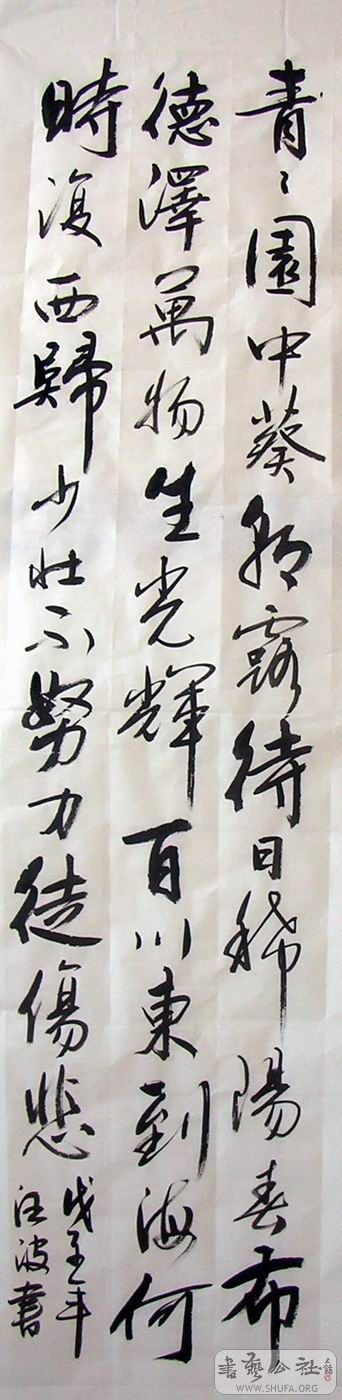 青〻園中葵朝露待日稀陽春布
德澤萬物生光輝百川東到海何
時復西歸少壯不努力徒傷悲
戊子年
汪波書
書藝公社
WWW.SHUFA.ORG